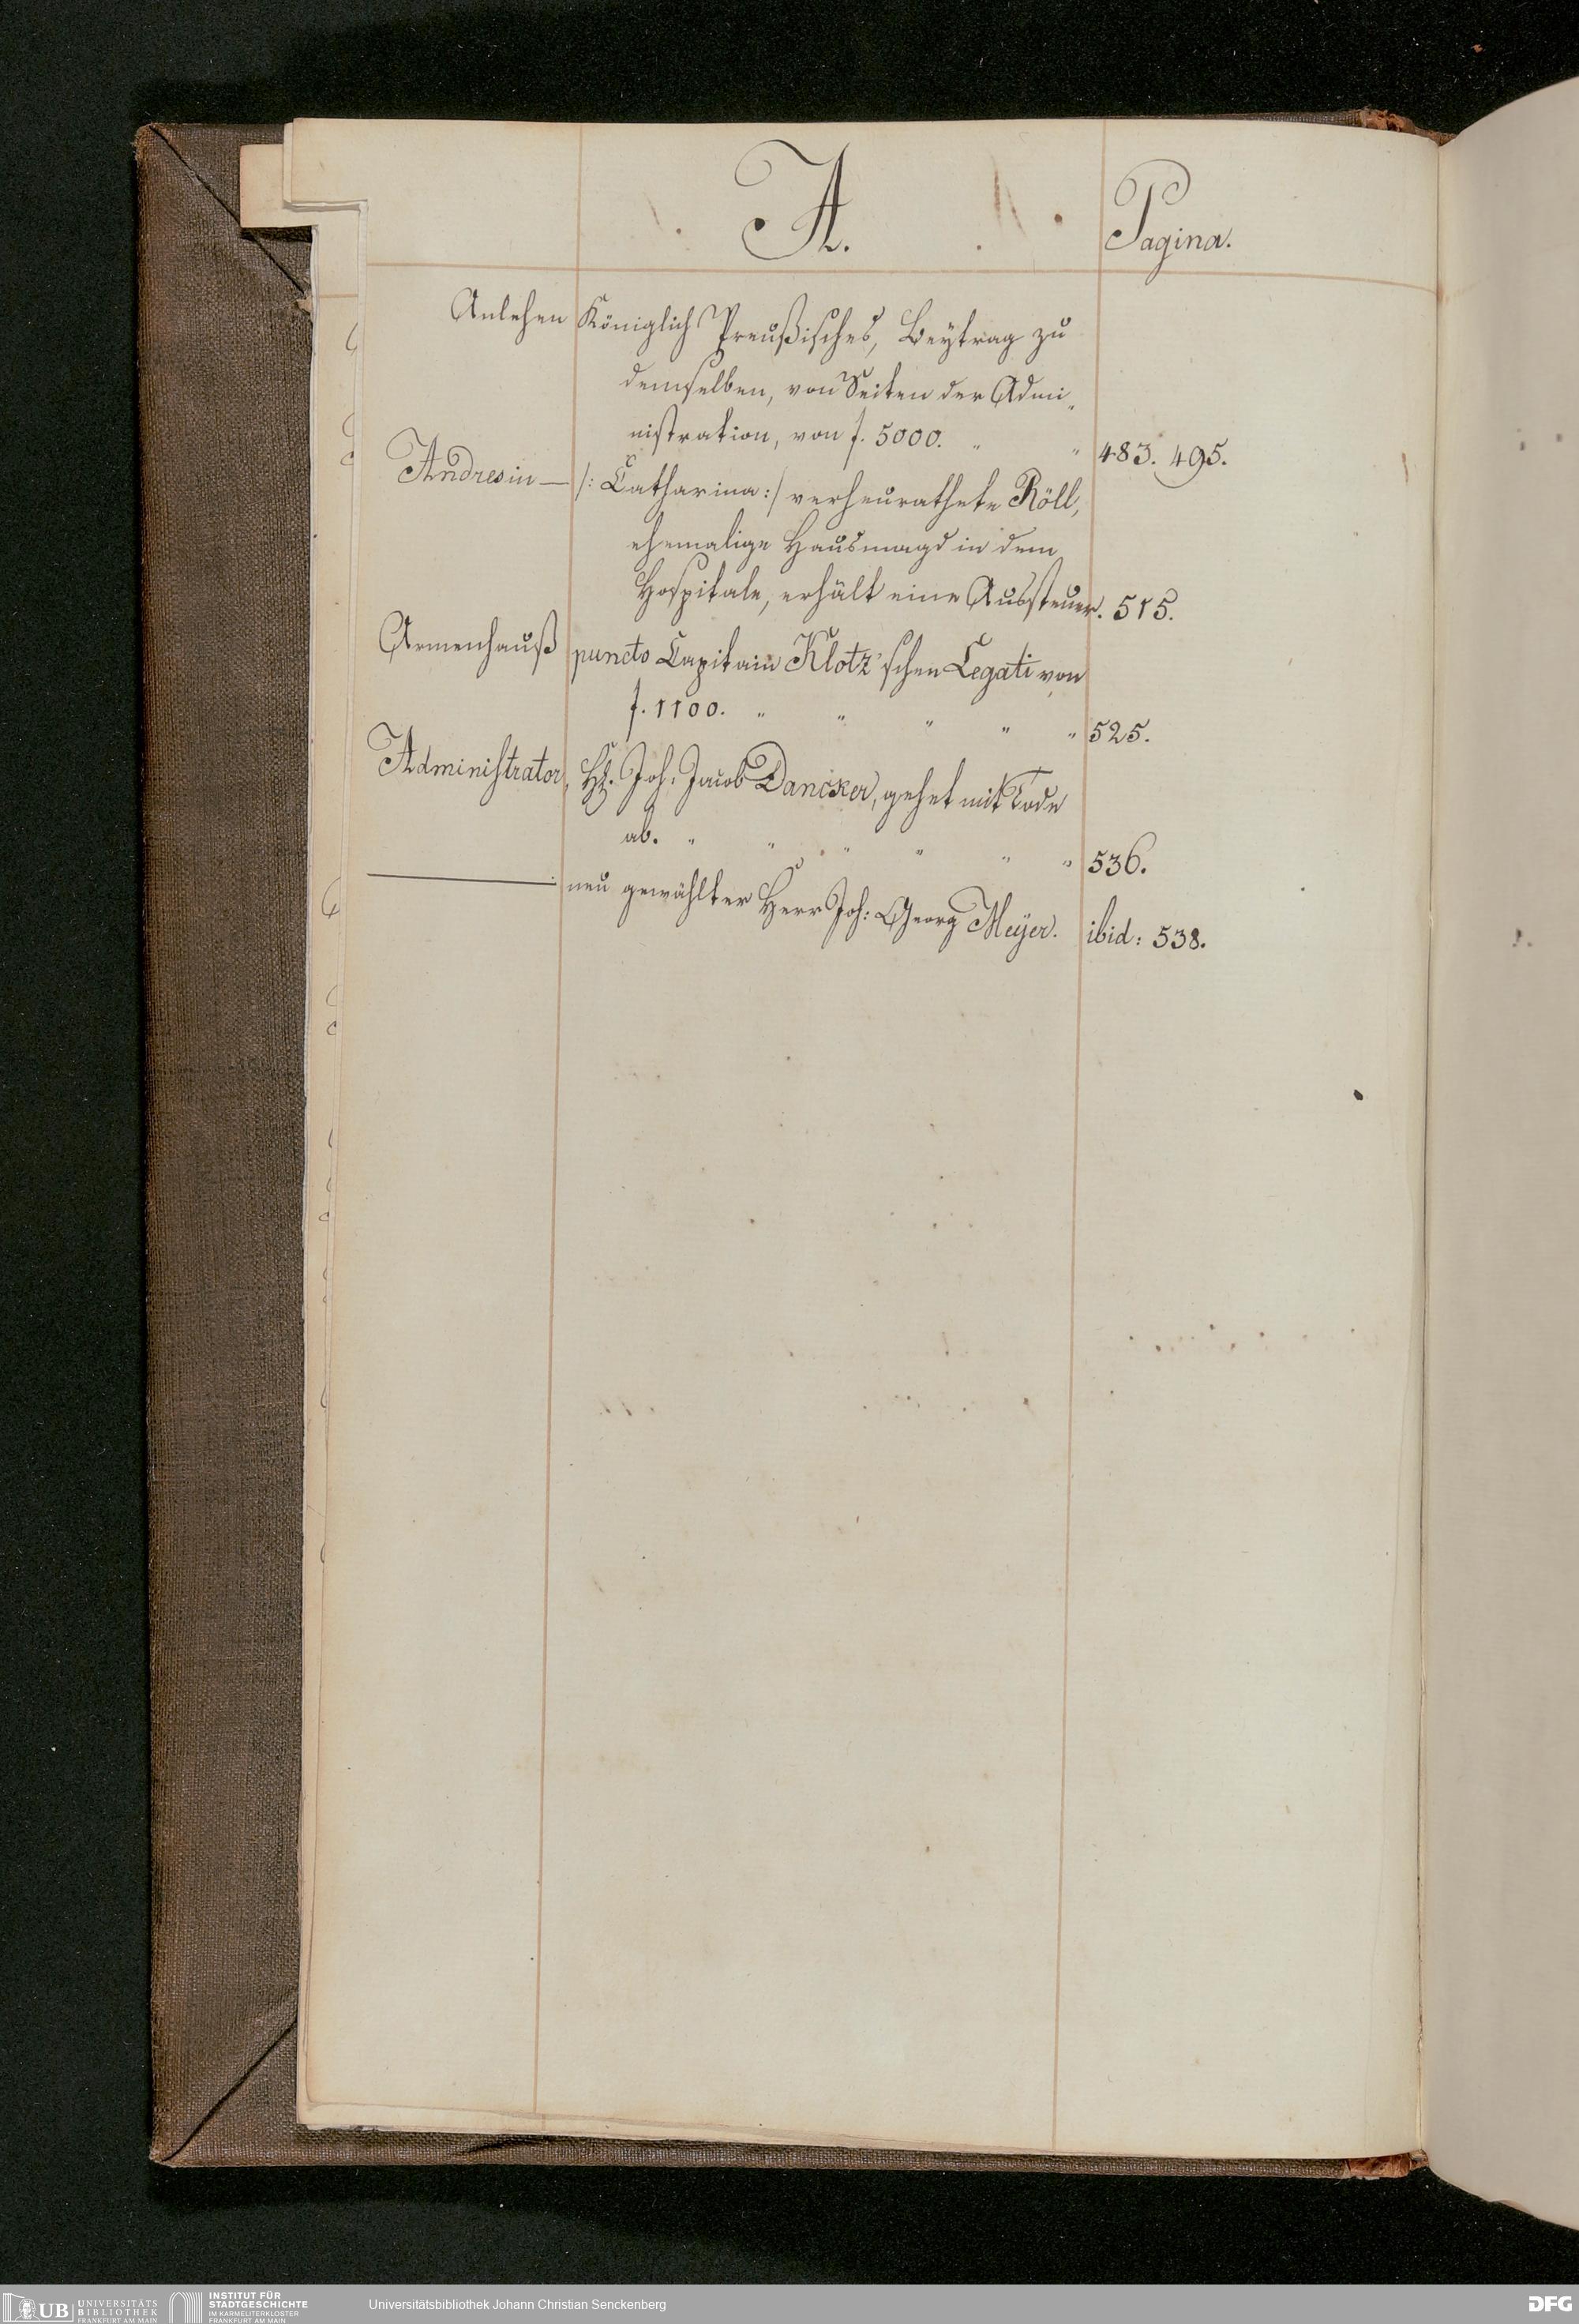 A.
Pagina.
Anlehen Königlich Preußisches, Beytrag zu
demselben, von Seiten der Admi„
nistration, von f. 5000. „ „ 483. 495.
Andresin — /: Catharina :/ verheurathete Röll,
ehemalige Hausmagd in dem
Hospitale, erhält eine Aussteuer. 515.
Armenhauß puncto Capitain Klotz'schen Legati von
f. 1100. „ „ „ „ „ 525.
Administrator, H. Joh. Jacob Dancker, gehet mit Tode
ab. „ „ „ „ „ „ 536.
——— neu gewählter Herr Joh: Georg Meyer. ibid: 538.
UB UNIVERSITÄTS BIBLIOTHEK FRANKFURT AM MAIN
INSTITUT FÜR STADTGESCHICHTE IM KARMELITERKLOSTER FRANKFURT AM MAIN
Universitätsbibliothek Johann Christian Senckenberg
DFG